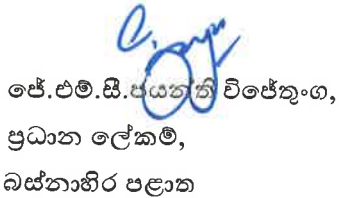 ජේ.එම්.සී.ජයන්ති විජේතුංග,
ප්‍රධාන ලේකම්,
බස්නාහිර පළාත